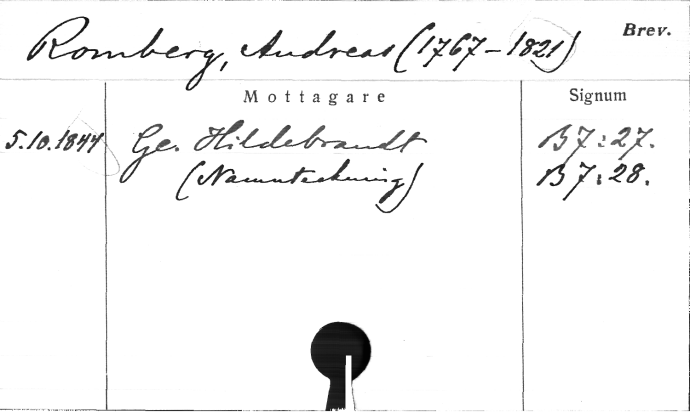 Romberg, Andreas (1767-1821) Brev.
Mottagare Signum
5.10.1844 Ge. Hildebrandt B7:27.
(Namnteckning) B7:28.